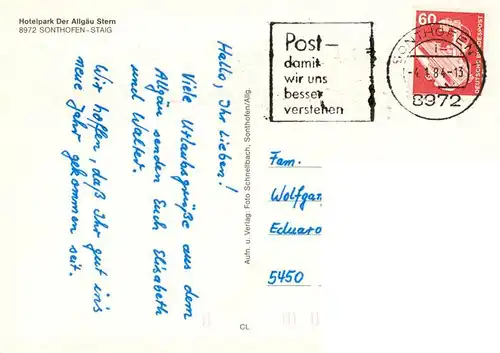 Hotelpark Der Allgäu Stern
8972 SONTHOFEN - STAIG
Hallo, Ihr Lieben!
Viele Urlaubsgrüße aus dem
Allgäu senden Euch Elisabeth
und Walter.
Wir hoffen, daß Ihr gut ins
neue Jahr gekommen seit.
Aufn. u. Verlag: Foto Schnellbach, Sonthofen/Allg.
CL
Post-
damit
wir uns
besser
verstehen
SONTHOFEN
1
-4.1.84-13
8972
60
DEUTSCHE BUNDESPOST
Fam.
Wolfgan
Eduard
5450